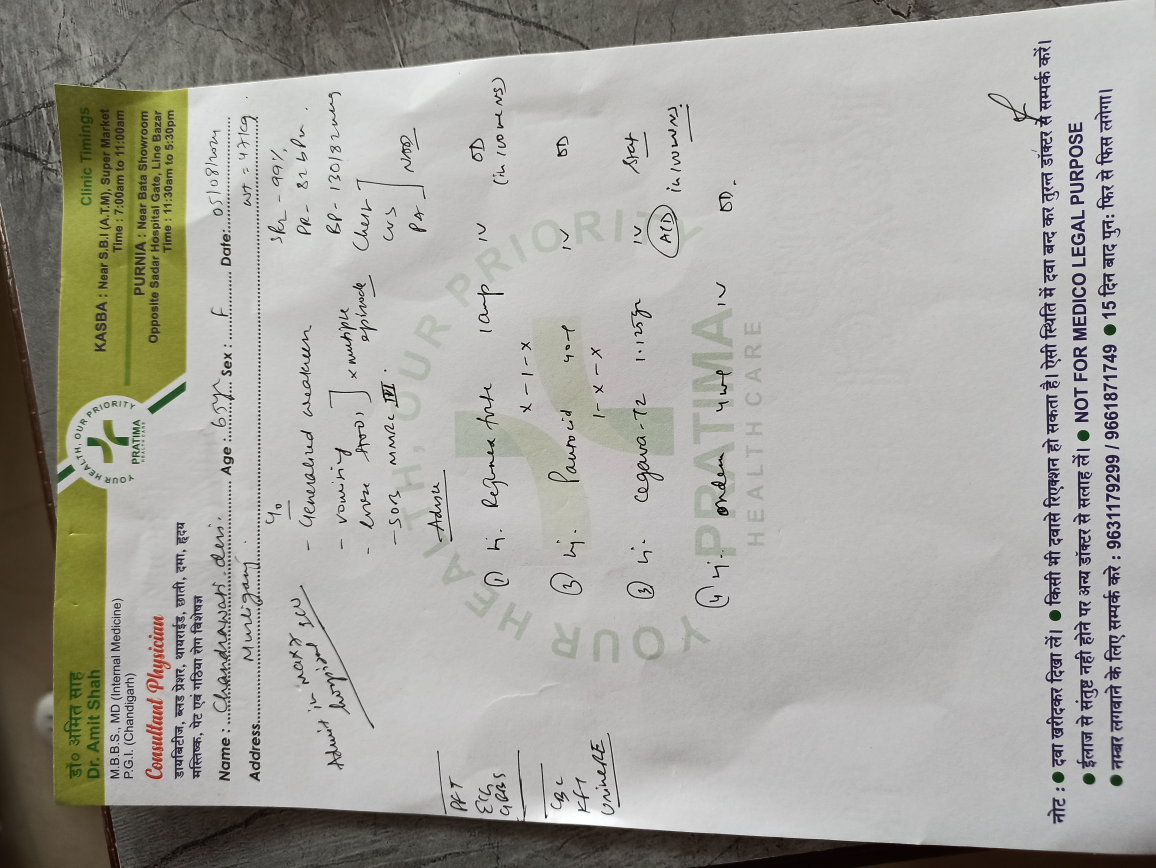 डा० अमित साह
Dr. Amit Shah
M.B.B.S., MD (Internal Medicine)
P.G.I. (Chandigarh)
Consultant Physician
डायबिटीज, ब्लड प्रेशर, थायराईड, छाती, दमा, हृदय
मस्तिष्क, पेट एवं गठिया रोग विशेषज्ञ
YOUR HEALTH, OUR PRIORITY
PRATIMA
HEALTHCARE
Clinic Timings
KASBA : Near S.B.I (A.T.M), Super Market
Time : 7:00am to 11:00am
PURNIA : Near Bata Showroom
Opposite Sadar Hospital Gate, Line Bazar
Time : 11:30am to 5:30pm
Name : Chandrawati devi. Age : 65yr Sex : F Date: 05/08/2024
Address Murliganj. WT = 47kg.
- Generalized weakness
- vomiting
- loose stool] x multiple episode
- SOB MMRC III.
PR - 82 bpm.
BP - 130/82 mmHg
Chest
CVS
PA
] NAD
Admit in max 7 hospital ICU
Advise
PFT
ECG
GRBS
CBC
KFT
Urine RE
① Inj. forte 1amp IV OD
x-1-x (in 100ml NS)
② Inj. 40 IV OD
1-x-x
③ Inj. -TZ 1.125gm IV Stat
in 100ml NS.
④ Inj. ondem IV OD.
YOUR HEALTH, OUR PRIORITY
PRATIMA
HEALTHCARE
नोट : ● दवा खरीदकर दिखा लें। ● किसी भी दवासे रिएक्शन हो सकता है। ऐसी स्थिति में दवा बन्द कर तुरन्त डॉक्टर से सम्पर्क करें।
● ईलाज से संतुष्ट नही होने पर अन्य डॉक्टर से सलाह लें। ● NOT FOR MEDICO LEGAL PURPOSE
● नम्बर लगवाने के लिए सम्पर्क करे : 9631179299 / 9661871749 ● 15 दिन बाद पुन: फिर से फिस लगेगा।